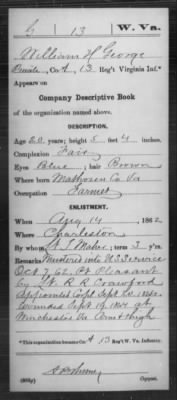 G | 13 | W. Va.
William H George
Private, Co. A, 13 Reg't Virginia Inf.*
Appears on
Company Descriptive Book
of the organization named above.
DESCRIPTION.
Age 20 years; height 5 feet 4 inches.
Complexion Fair
Eyes Blue; hair Brown
Where born Va
Occupation Farmer
ENLISTMENT.
When Aug 14, 1862
Where Charleston
By whom term 3 y'rs.
Remarks Mustered into U S Service
Oct 7, 62, Pt Pleasant
by Lt. R R Crawford
Appointed Corpl Sept
Wounded Sept 19 1864 at
Winchester Va thigh
*This organization became Co. A 13 Reg't W. Va. Infantry.
Copyist.